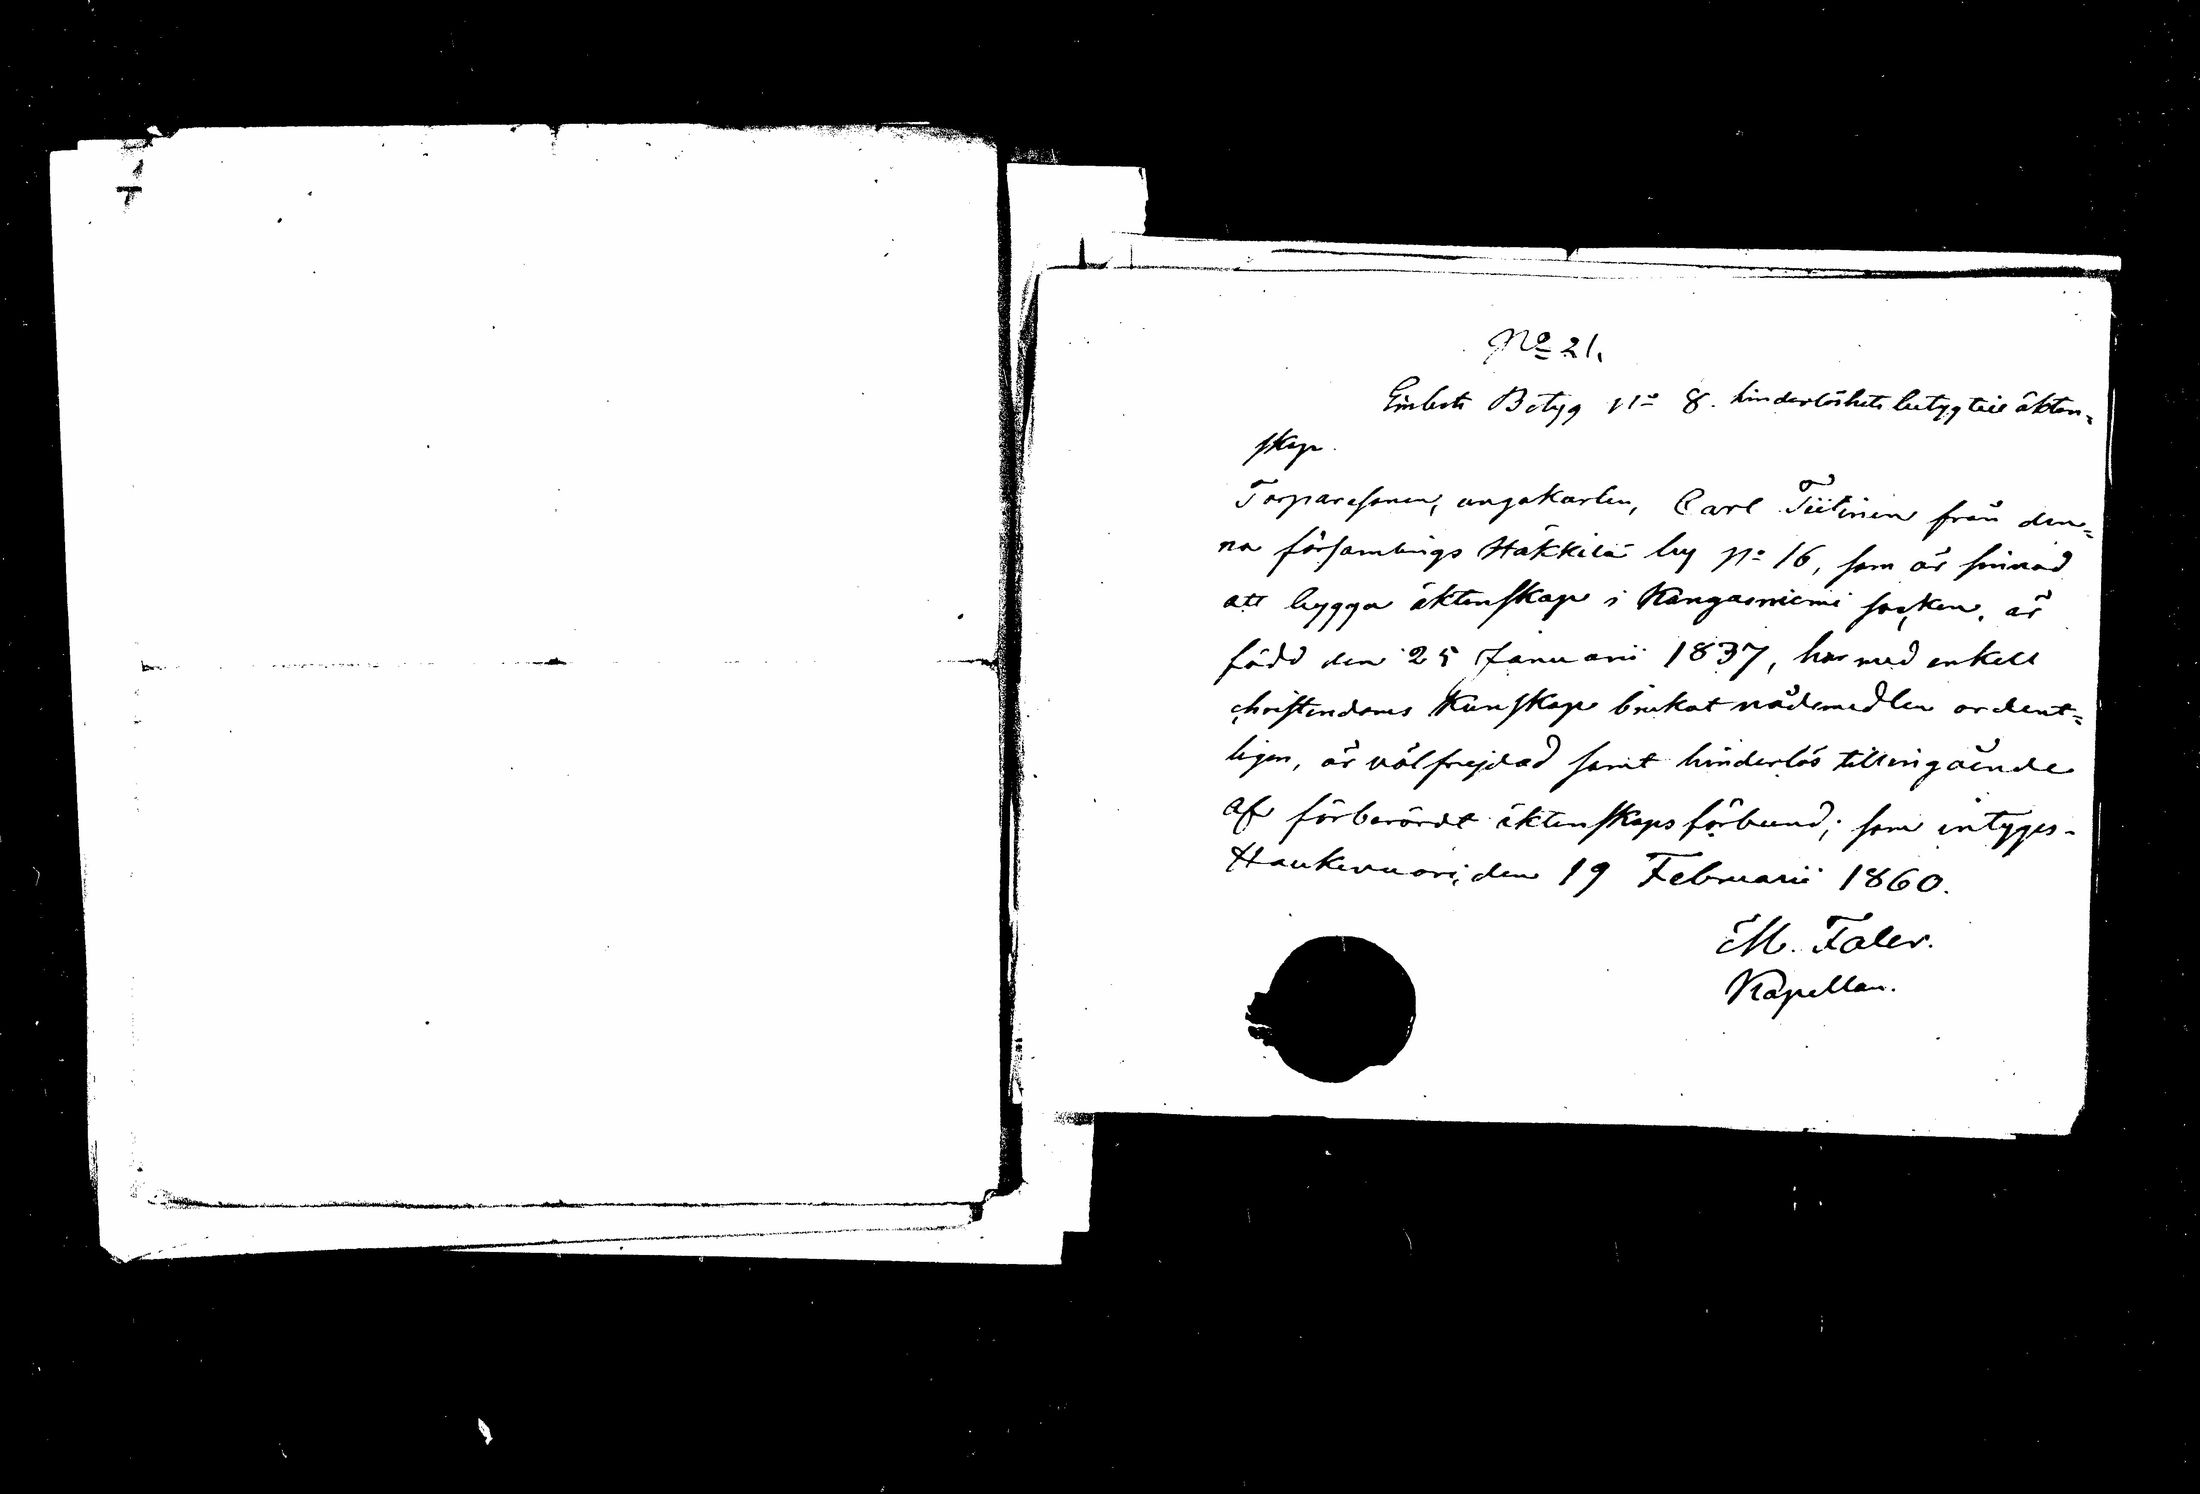 No 21.
Embets Betyg No 8. hinderlöshets betyg till äkten=
skap.
Torparesonen, ungakarlen, Carl Tiitinen från den=
na församlings Häkkilä by No 16, som är sinnad
att bygga äktenskap i Kangasniemi socken, är
född den 25 Januarii 1837, har med enkell
christendoms kunskap brukat nådemedlen ordent=
ligen, är välfrejdad samt hinderlös till ingående
af förberördt äktenskaps förbund; som intyges.
Haukivuori, den 19 Februarii 1860.
M. Faler.
Kapellan.